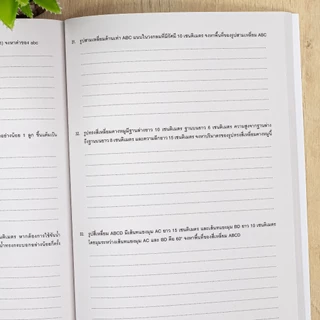 ) จงหาค่าของ abc
อย่างน้อย 1 ลูก ขึ้นต้มเป็น
ติเมตร หากต้องการใช้ขันน้ำ
น้ำทรงกระบอกอย่างน้อยกี่ครั้ง
21. รูปสามเหลี่ยมด้านเท่า ABC แนบในวงกลมที่มีรัศมี 10 เซนติเมตร จงหาพื้นที่ของรูปสามเหลี่ยม ABC
22. รูปทรงสี่เหลี่ยมคางหมูมีฐานล่างยาว 10 เซนติเมตร ฐานบนยาว 5 เซนติเมตร ความสูงจากฐานล่าง
ถึงฐานบนยาว 8 เซนติเมตร และความลึกยาว 15 เซนติเมตร จงหาปริมาตรของรูปทรงสี่เหลี่ยมคางหมูนี้
23. รูปสี่เหลี่ยม ABCD มีเส้นทแยงมุม AC ยาว 15 เซนติเมตร และเส้นทแยงมุม BD ยาว 10 เซนติเมตร
โดยมุมระหว่างเส้นทแยงมุม AC และ BD คือ 60° จงหาพื้นที่ของสี่เหลี่ยม ABCD